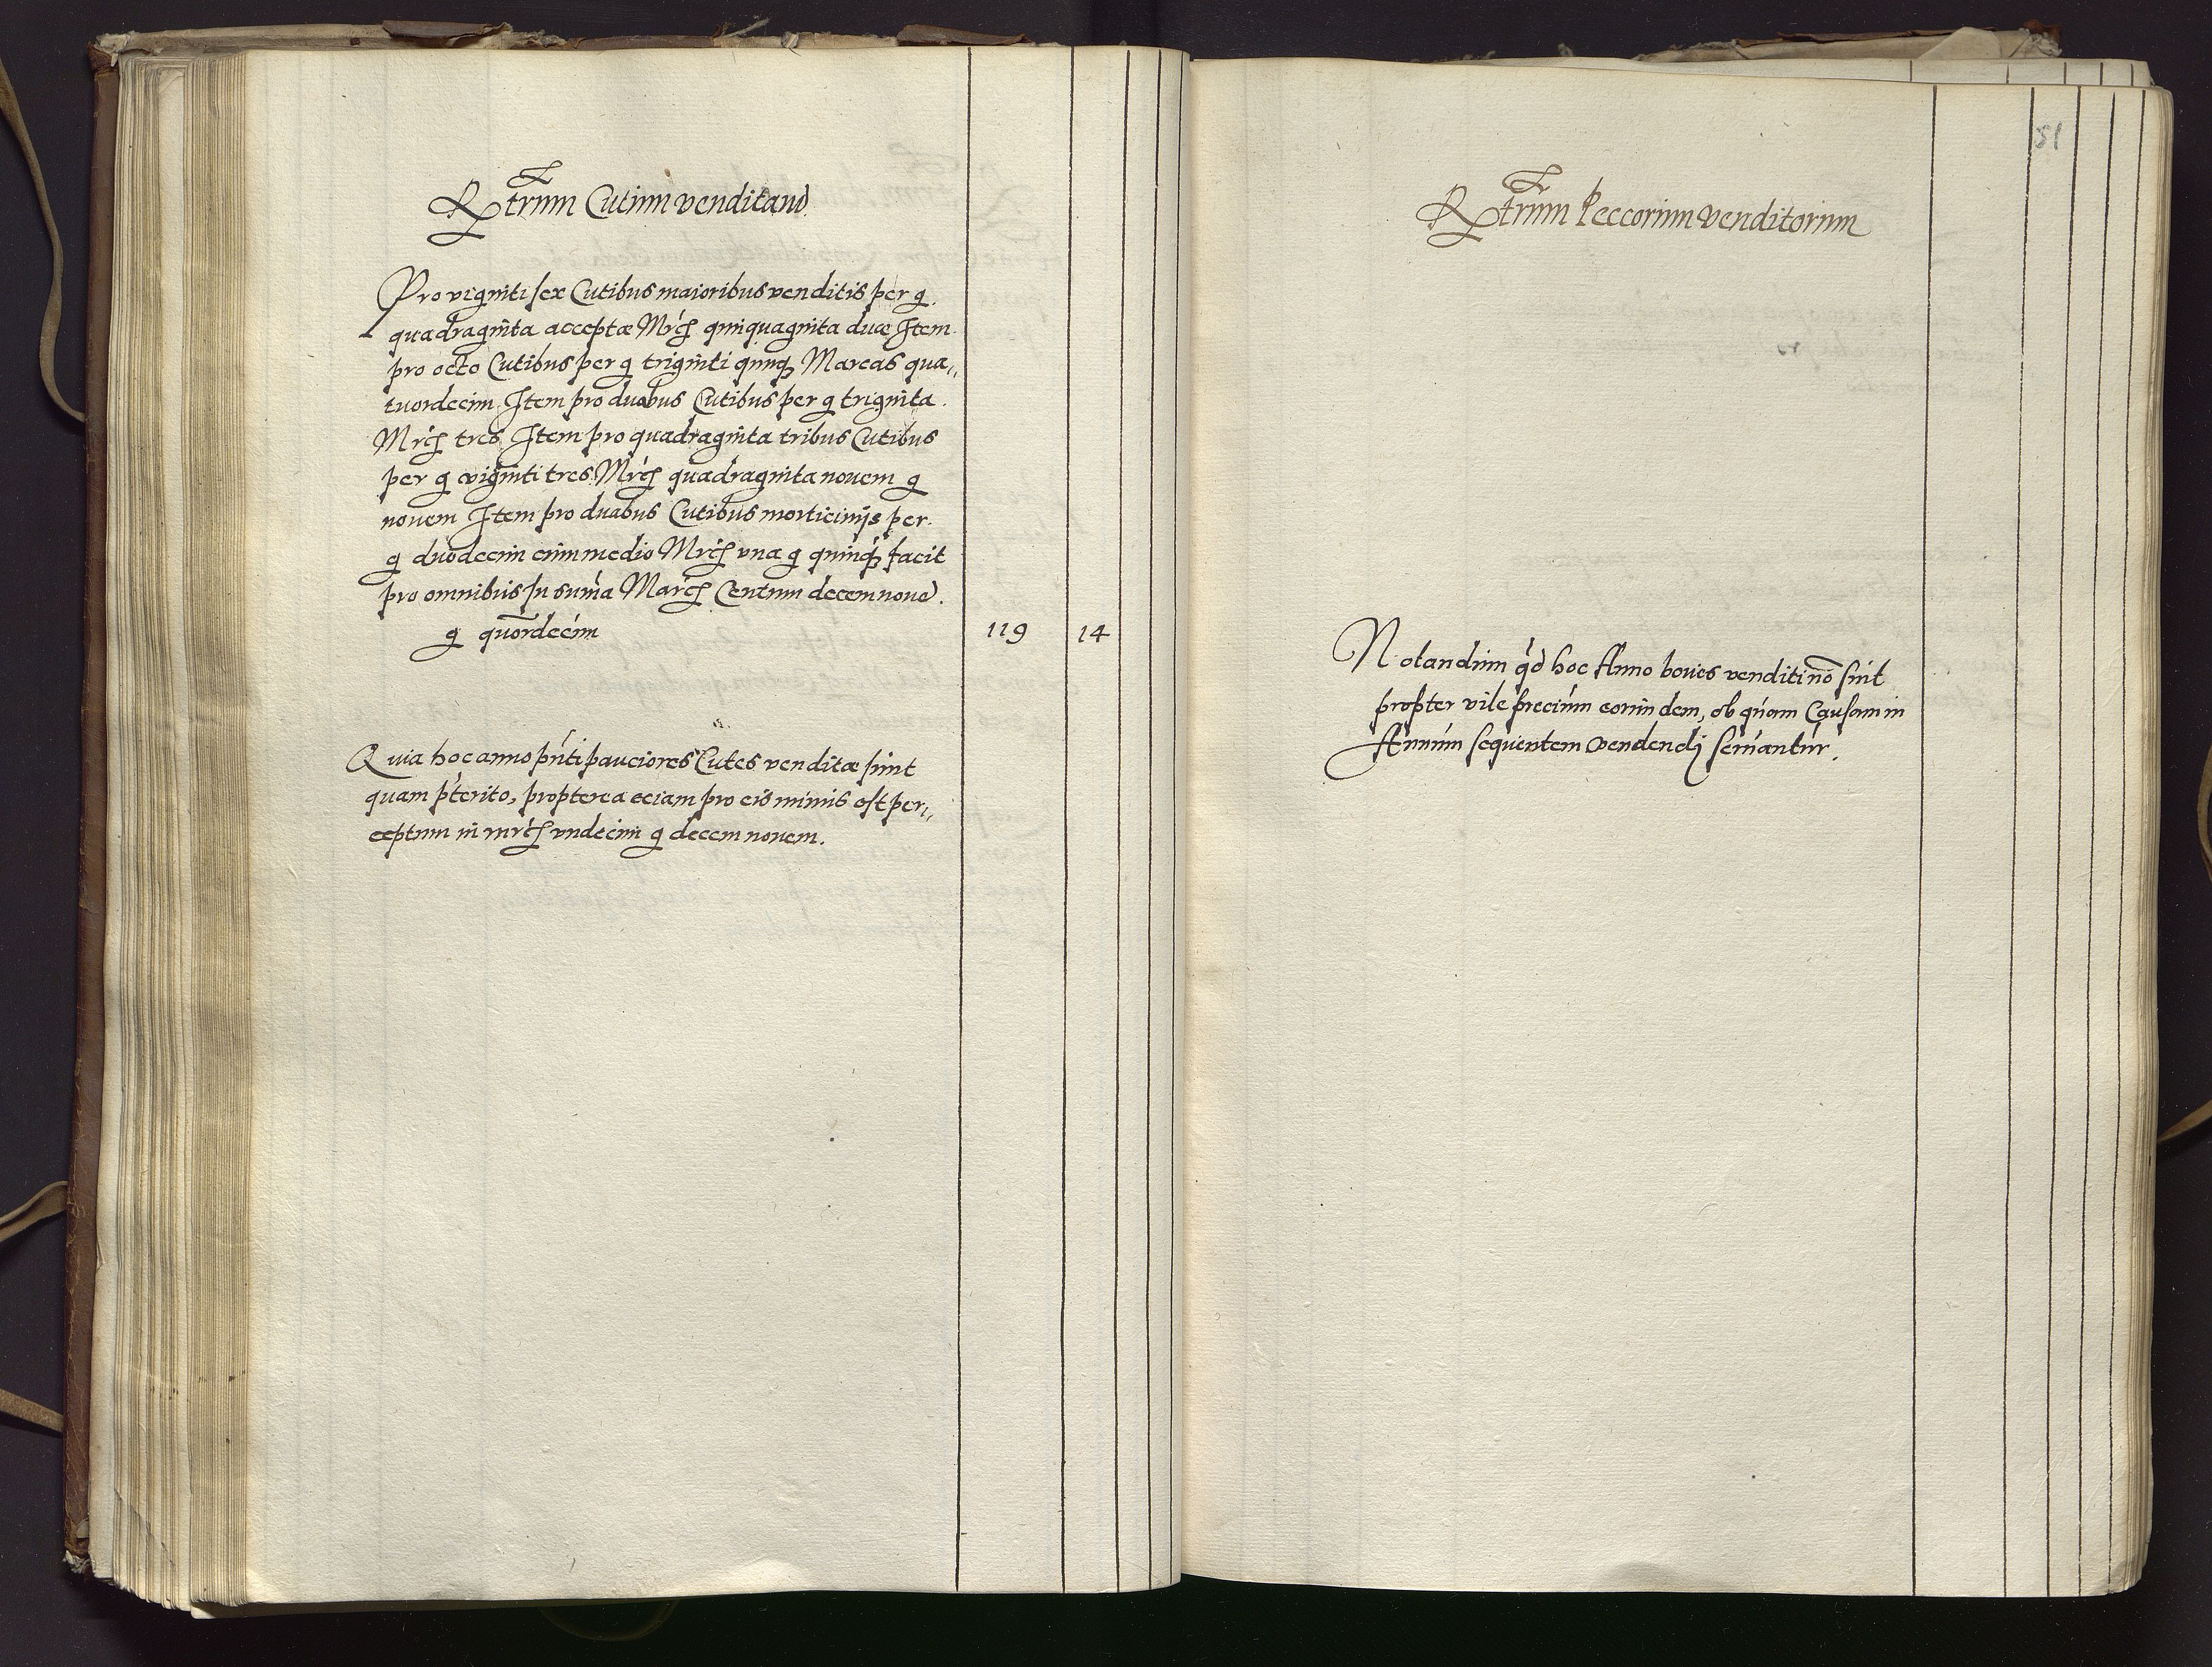 Rtrum Cutium venditand.
Pro viginti sex Cutibus maioribus venditis per g.
quadraginta acceptæ Mrch quinquaginta duæ Item
pro octo Cutibus per g triginti quinq Marcas qua„
tuordecim. Item pro duabus Cutibus per g triginta.
Mrch tres Item pro quadraginta tribus Cutibus
per g viginti tres Mrch quadraginta novem g
novem Item pro duabus Cutibus morticinijs per.
g duodecim cum medio Mrch una g quinq facit
pro omnibus In suma March Centum decem nove.
g quordecim 119 14
Quia hoc anno pnti pauciores Cutes venditæ sunt
quam pterito, propterea eciam pro eis minus est per„
ceptum in mrch undecim g decem novem.
51
Rtrum Peccorum venditorum
Notandum qd hoc Anno boves venditi no sint
propter vile precium eorundem, ob quam Causam in
Annum sequentem vendendj servantur.